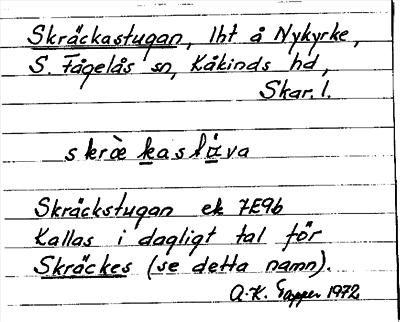 Skräckastugan, lht å Nykyrke,
S. Fågelås sn, Kåkinds hd,
Skar. l.
skræ̀kaslöva
Skräckstugan ek 7E9b
Kallas i dagligt tal för
Skräckes (se detta namn).
A.-K. 1972